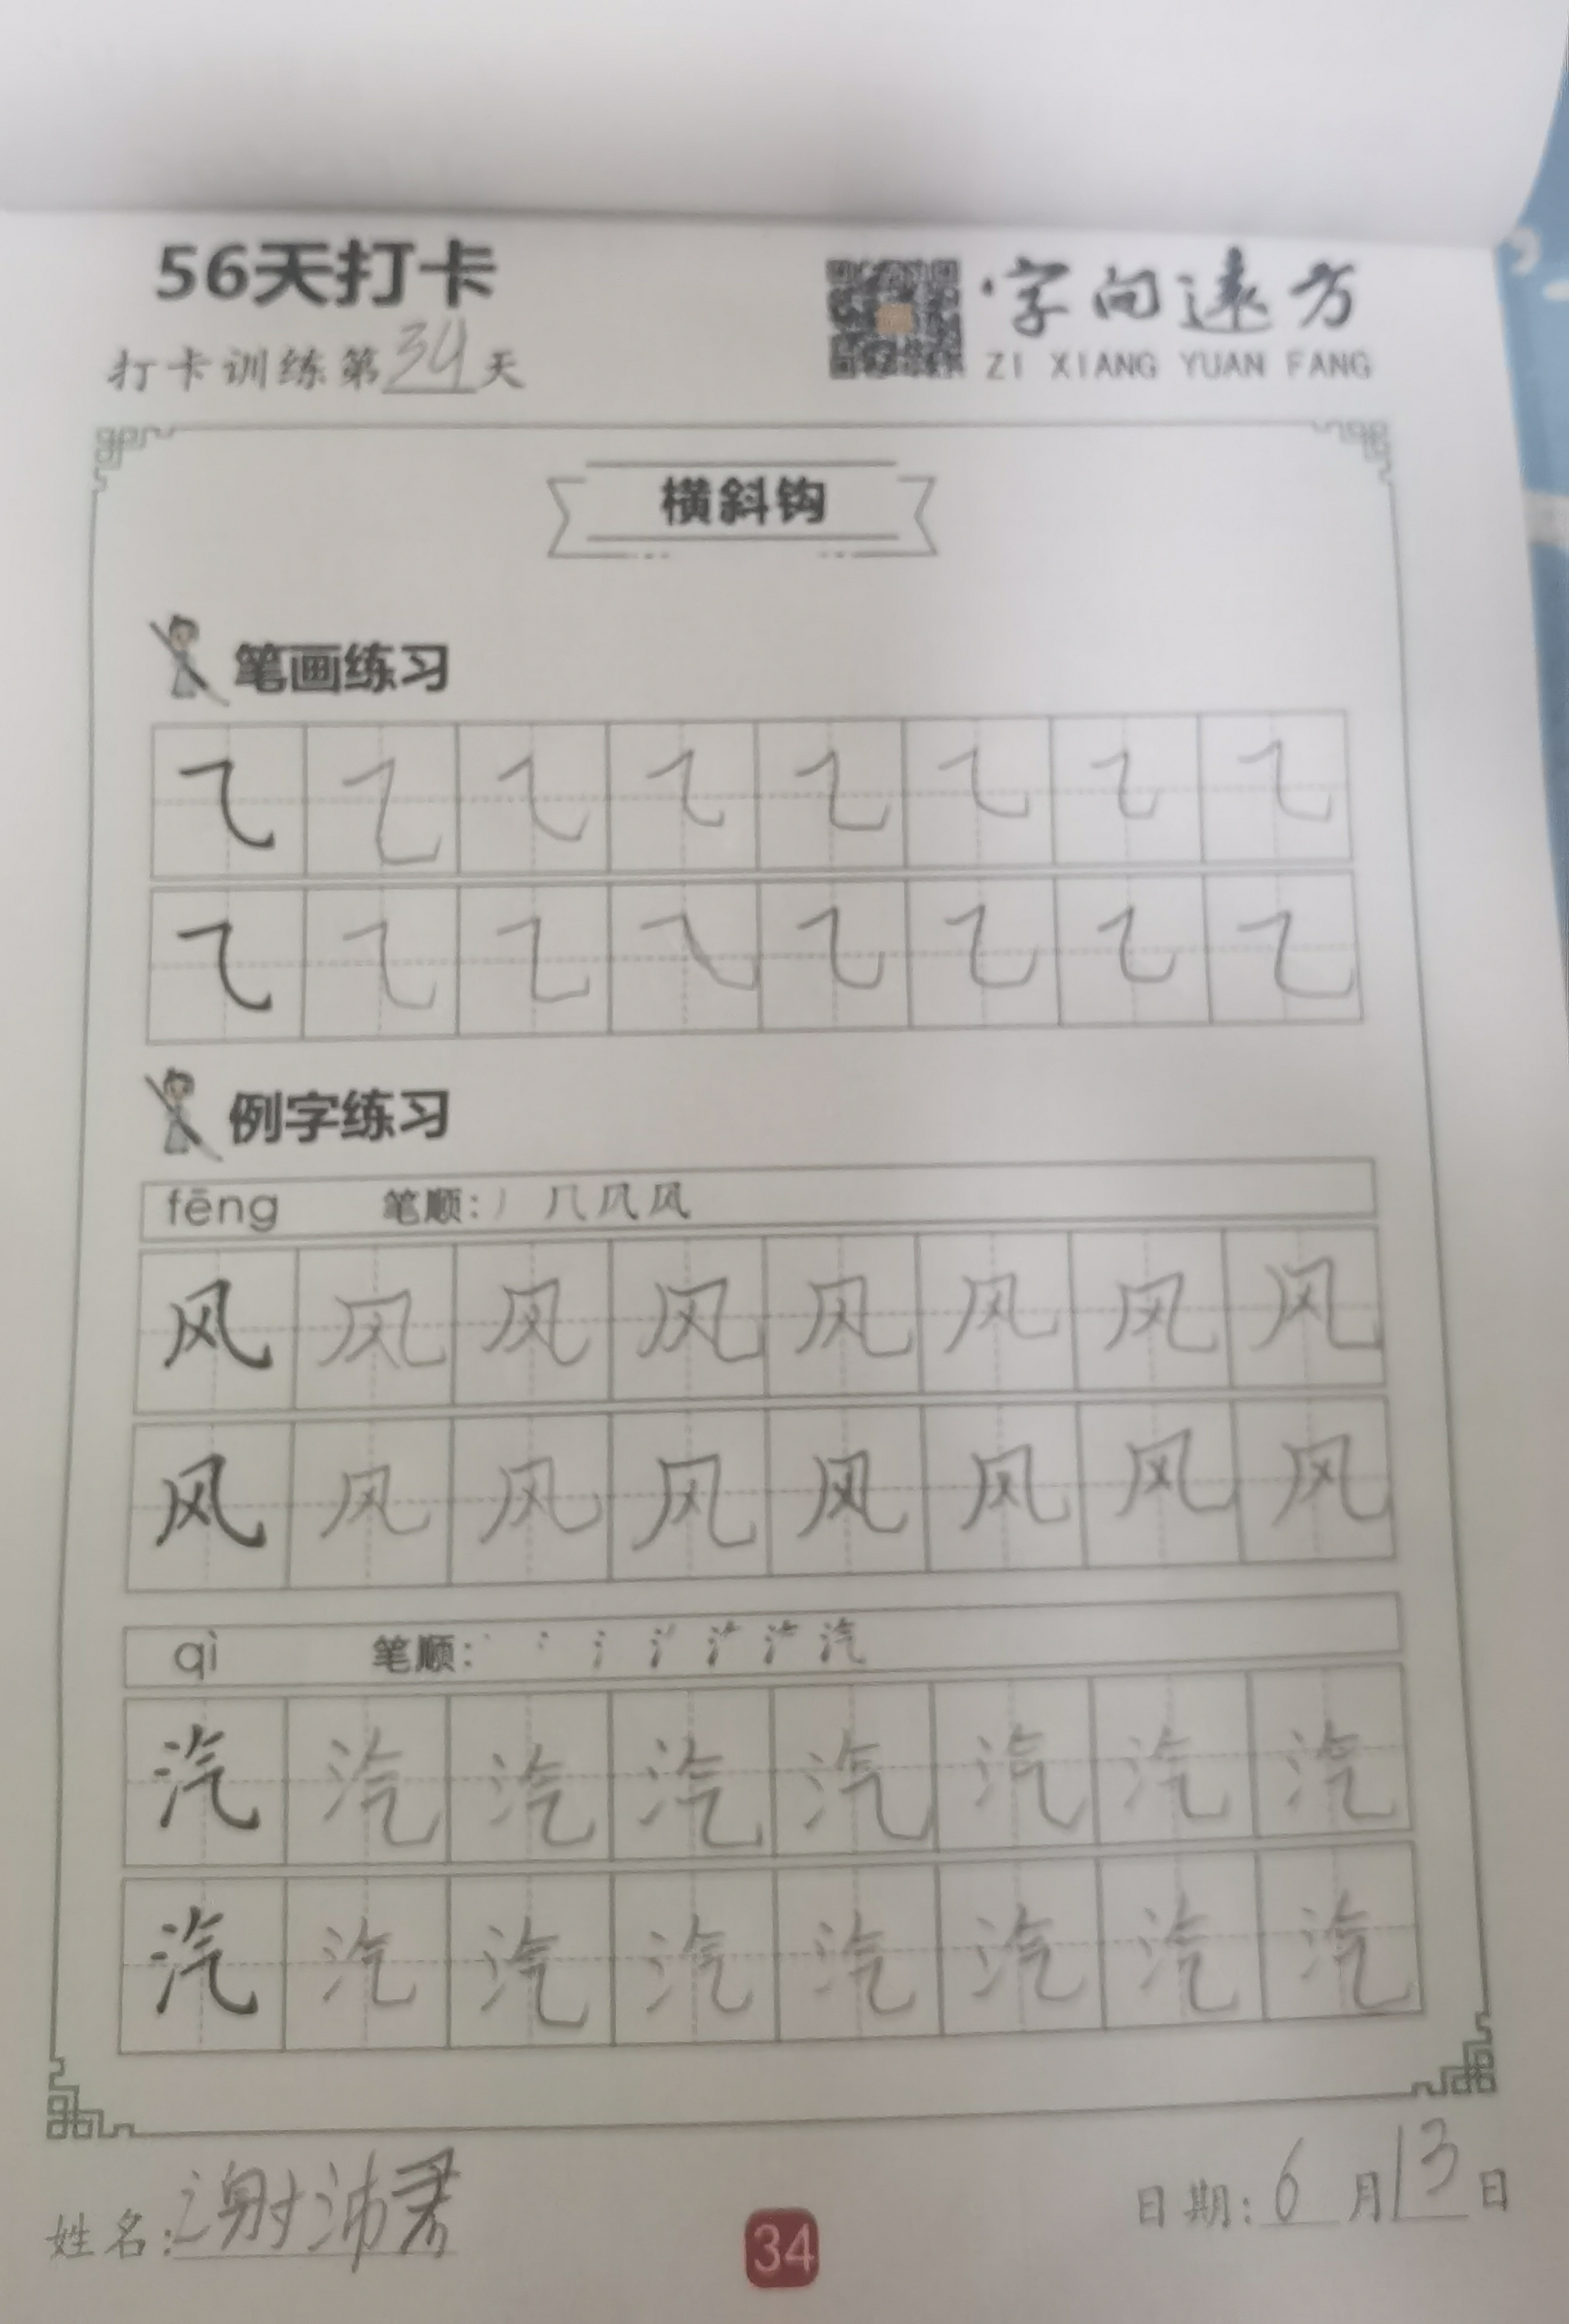 56天打卡
字向远方
打卡训练第34天
ZI XIANG YUAN FANG
横斜钩
笔画练习
⺄ ⺄ ⺄ ⺄ ⺄ ⺄ ⺄ ⺄
⺄ ⺄ ⺄ ⺄ ⺄ ⺄ ⺄ ⺄
例字练习
fēng 笔顺: 丿 几 风 风
风 风 风 风 风 风 风 风
风 风 风 风 风 风 风 风
qì 笔顺: 汽
汽 汽 汽 汽 汽 汽 汽 汽
汽 汽 汽 汽 汽 汽 汽 汽
姓名: 谢沛 日期: 6月13日
34